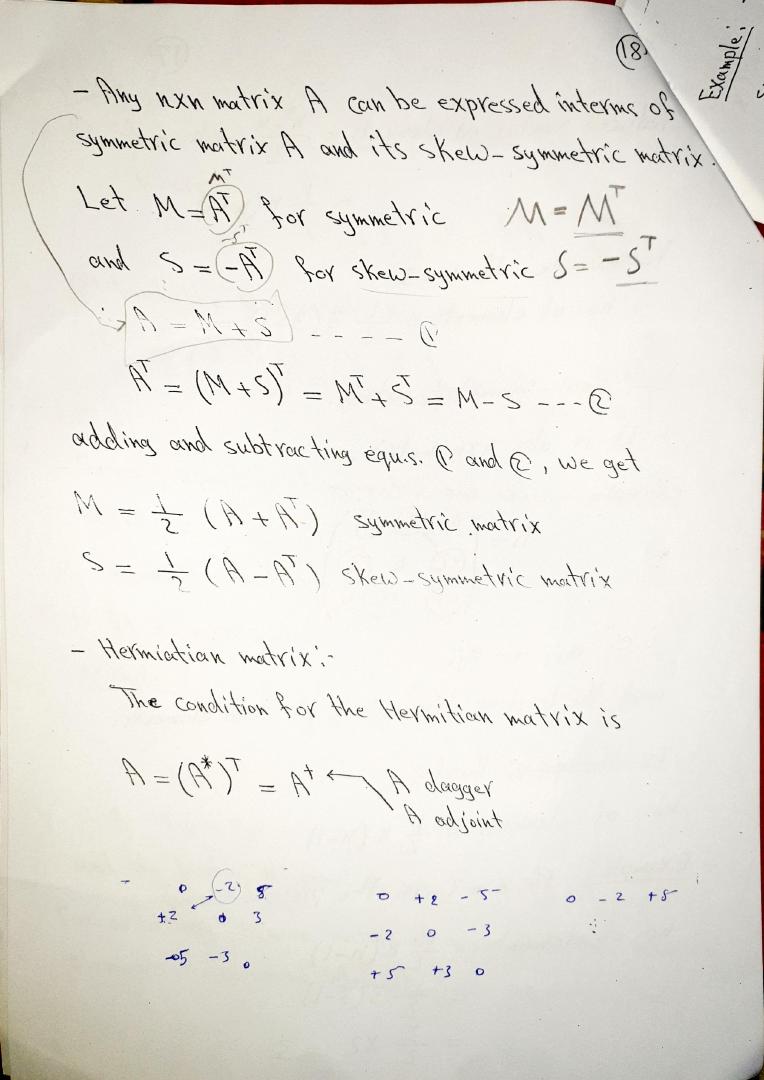 18
Example:
- Any nxn matrix A can be expressed interms of
symmetric matrix A and its skew-symmetric matrix.
Mᵀ
Let M=Aᵀ for symmetric M=Mᵀ
Sᵀ
and S = -Aᵀ for skew-symmetric S= -Sᵀ
∴ A = M + S ---- ①
Aᵀ = (M+S)ᵀ = Mᵀ+Sᵀ = M-S --- ②
adding and subtracting equs. ① and ②, we get
M = 1/2 (A + Aᵀ) symmetric matrix
S = 1/2 (A - Aᵀ) skew-symmetric matrix
- Hermiatian matrix:-
The condition for the Hermitian matrix is
A = (A*)ᵀ = A† A dagger
A adjoint
0 -2 5 0 +2 -5 0 -2 +5
+2 0 3 -2 0 -3
-5 -3 0 +5 +3 0